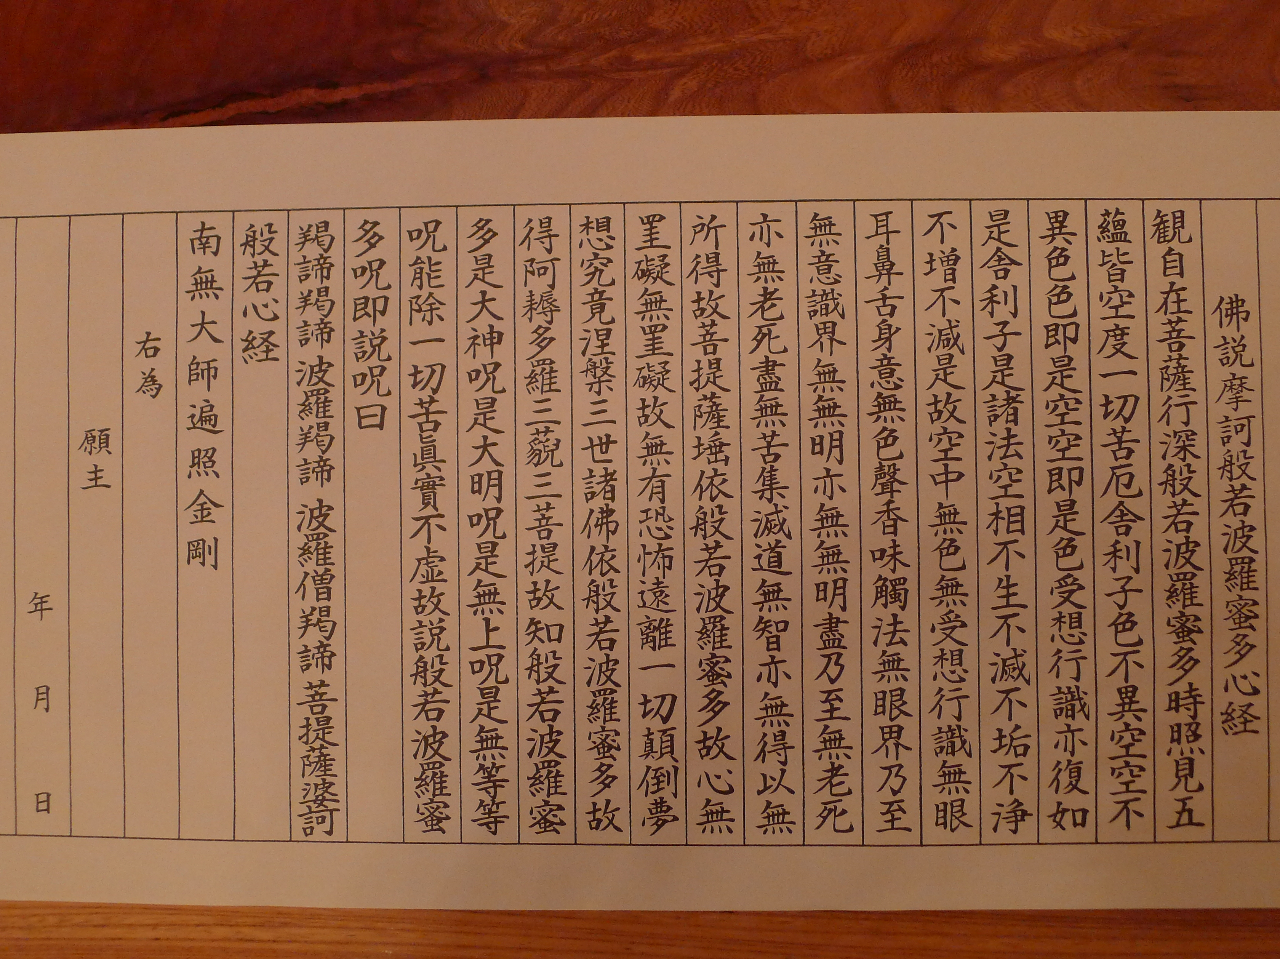 佛説摩訶般若波羅蜜多心経
観自在菩薩行深般若波羅蜜多時照見五
蘊皆空度一切苦厄舎利子色不異空空不
異色色即是空空即是色受想行識亦復如
是舎利子是諸法空相不生不滅不垢不浄
不増不減是故空中無色無受想行識無眼
耳鼻舌身意無色聲香味觸法無眼界乃至
無意識界無無明亦無無明盡乃至無老死
亦無老死盡無苦集滅道無智亦無得以無
所得故菩提薩埵依般若波羅蜜多故心無
罣礙無罣礙故無有恐怖遠離一切顛倒夢
想究竟涅槃三世諸佛依般若波羅蜜多故
得阿耨多羅三藐三菩提故知般若波羅蜜
多是大神呪是大明呪是無上呪是無等等
呪能除一切苦眞實不虚故説般若波羅蜜
多呪即説呪曰
羯諦羯諦 波羅羯諦 波羅僧羯諦 菩提薩婆訶
般若心経
南無大師遍照金剛
右為
願主
年 月 日